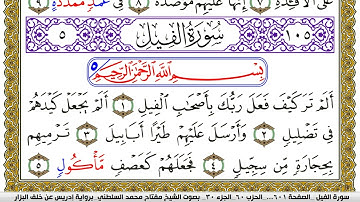 عَلَى الْأَفْـِٔدَةِ ٧ إِنَّهَا عَلَيْهِم مُّوصَدَةٌ ٨ فِي عَمَدٍ مُّمَدَّدَةٍ ٩
٥ سُورَةُ الفِيلِ ١٠٥
بِسْمِ اللَّهِ الرَّحْمَٰنِ الرَّحِيمِ
أَلَمْ تَرَ كَيْفَ فَعَلَ رَبُّكَ بِأَصْحَٰبِ الْفِيلِ ١ أَلَمْ يَجْعَلْ كَيْدَهُمْ
فِي تَضْلِيلٍ ٢ وَأَرْسَلَ عَلَيْهِمْ طَيْرًا أَبَابِيلَ ٣ تَرْمِيهِم
بِحِجَارَةٍ مِّن سِجِّيلٍ ٤ فَجَعَلَهُمْ كَعَصْفٍ مَّأْكُولٍ
سورة الفيل_الصفحة ٦٠١... الحزب ٦٠_الجزء ٣٠_ بصوت الشيخ مفتاح محمد السلطني_برواية إدريس عن خلف البزار